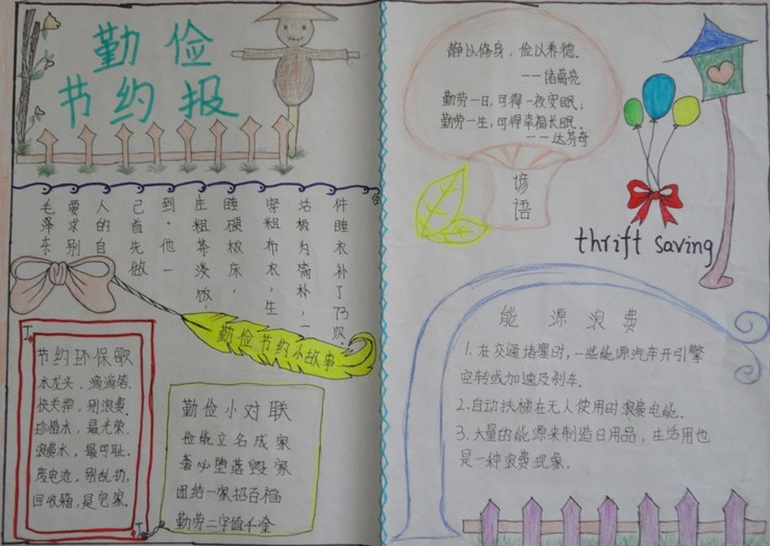 勤俭
节约报
毛泽东
要求别
人的自
己首先做
到。他一
生粗茶淡饭，
睡硬板床，
穿粗布衣，生
活极为简朴，一
件睡衣补了73次，
勤俭节约小故事
节约环保歌
水龙头，滴滴答。
快关掉，别浪费。
珍惜水，最光荣。
浪费水，最可耻。
废电池，别乱扔，
回收箱，是它家。
勤俭小对联
俭能立名成家
奢必堕落毁家
团结一家招百福
勤劳二字值千金
静以修身，俭以养德。
——诸葛亮
勤劳一日，可得一夜安眠；
勤劳一生，可得幸福长眠。
——达芬奇
谚
语
thrift saving
能源浪费
1.在交通堵塞时，一些能源汽车开引擎
空转或加速及刹车.
2.自动扶梯在无人使用时浪费电能.
3.大量的能源来制造日用品，生活用也
是一种浪费现象.